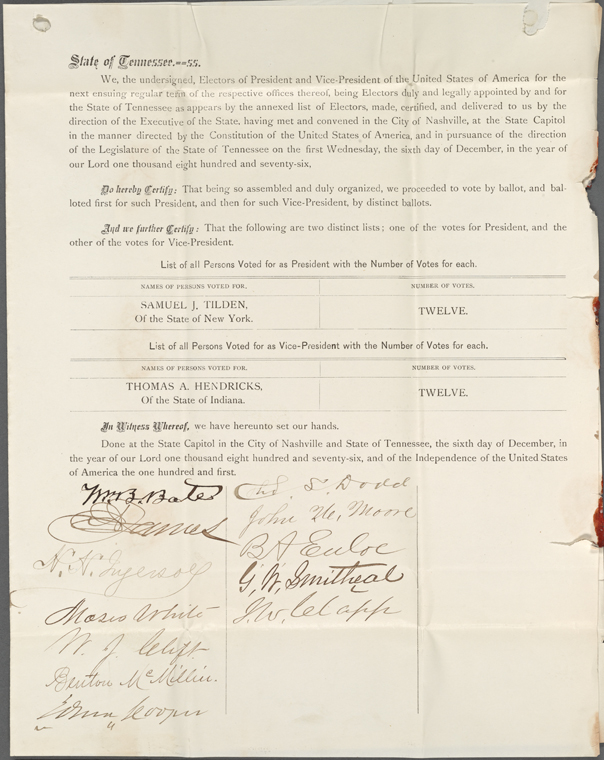 State of Tennessee.==ss.
We, the undersigned, Electors of President and Vice-President of the United States of America for the
next ensuing regular term of the respective offices thereof, being Electors duly and legally appointed by and for
the State of Tennessee as appears by the annexed list of Electors, made, certified, and delivered to us by the
direction of the Executive of the State, having met and convened in the City of Nashville, at the State Capitol
in the manner directed by the Constitution of the United States of America, and in pursuance of the direction
of the Legislature of the State of Tennessee on the first Wednesday, the sixth day of December, in the year of
our Lord one thousand eight hundred and seventy-six,
Do hereby Certify: That being so assembled and duly organized, we proceeded to vote by ballot, and bal-
loted first for such President, and then for such Vice-President, by distinct ballots.
And we further Certify: That the following are two distinct lists; one of the votes for President, and the
other of the votes for Vice-President.
List of all Persons Voted for as President with the Number of Votes for each.
NAMES OF PERSONS VOTED FOR. NUMBER OF VOTES.
SAMUEL J. TILDEN,
Of the State of New York. TWELVE.
List of all Persons Voted for as Vice-President with the Number of Votes for each.
NAMES OF PERSONS VOTED FOR. NUMBER OF VOTES.
THOMAS A. HENDRICKS,
Of the State of Indiana. TWELVE.
In Witness Whereof, we have hereunto set our hands.
Done at the State Capitol in the City of Nashville and State of Tennessee, the sixth day of December, in
the year of our Lord one thousand eight hundred and seventy-six, and of the Independence of the United States
of America the one hundred and first.
Wm. B. Bate
James
H. H. Ingersoll
Moses White
W. J. Clift
Benton McMillin.
Edmund Cooper
S. Dodd
John W. Moore
B A Enloe
G. W. Smitheal
J. W. Clapp